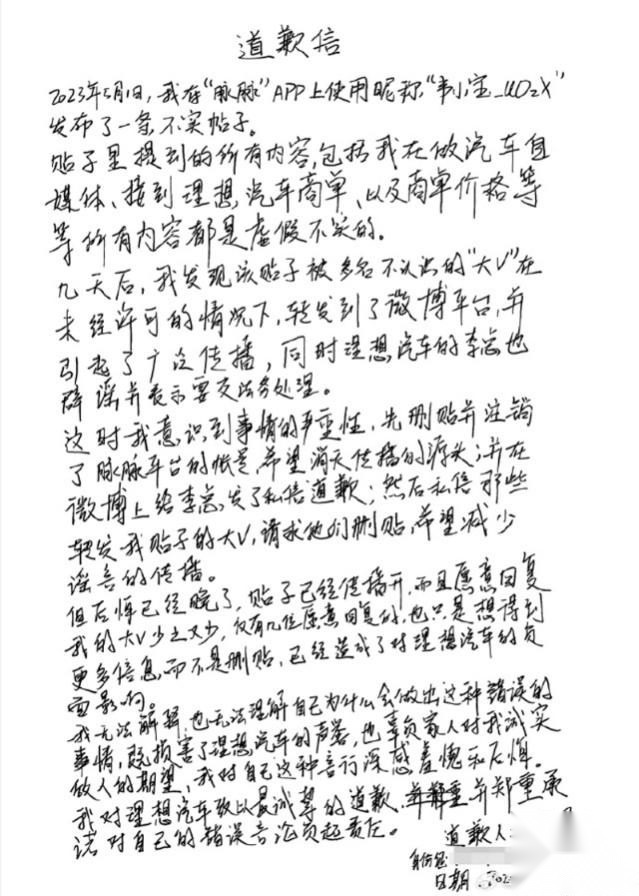 道歉信
2023年5月1日,我在"脉脉"APP上使用昵称"韦小宝_UO2X"
发布了一条不实帖子。
贴子里提到的所有内容,包括我在做汽车自
媒体、接到理想汽车商单、以及商单价格等
等所有内容都是虚假不实的。
九天后,我发现该贴子被多名不认识的"大V"在
未经许可的情况下,转发到了微博平台,并
引起了广泛传播,同时理想汽车的李总也
辟谣并表示要交法务处理。
这时我意识到事情的严重性,先删贴并注销
了脉脉平台的帐号,希望消灭传播的源头;并在
微博上给李总发了私信道歉;然后私信那些
转发我贴子的大V,请求他们删贴,希望减少
谣言的传播。
但后悔已经晚了,贴子已经传播开,而且愿意回复
我的大V少之又少,仅有几位愿意回复的,也只是想得到
更多信息,而不是删贴,已经造成了对理想汽车的负
面影响。
我无法解释,也无法理解自己为什么会做出这种错误的
事情,既损害了理想汽车的声誉,也辜负家人对我诚实
做人的期望,我对自己这种言行深感羞愧和后悔。
我对理想汽车致以最诚挚的道歉,并郑重承
诺对自己的错误言论负起责任。
道歉人:
身份证
日期: